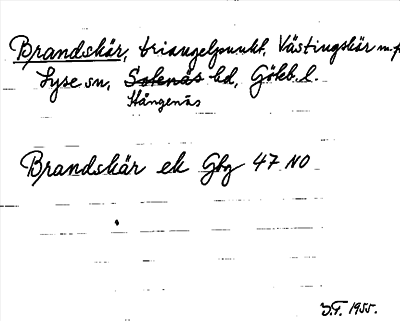 Brandskär, triangelpunkt, Västingskär m.fl.
Lyse sn, Sotenäs hd, Göteb. l.
Stångenäs
Brandskär ek Gbg 47 NO
1955.